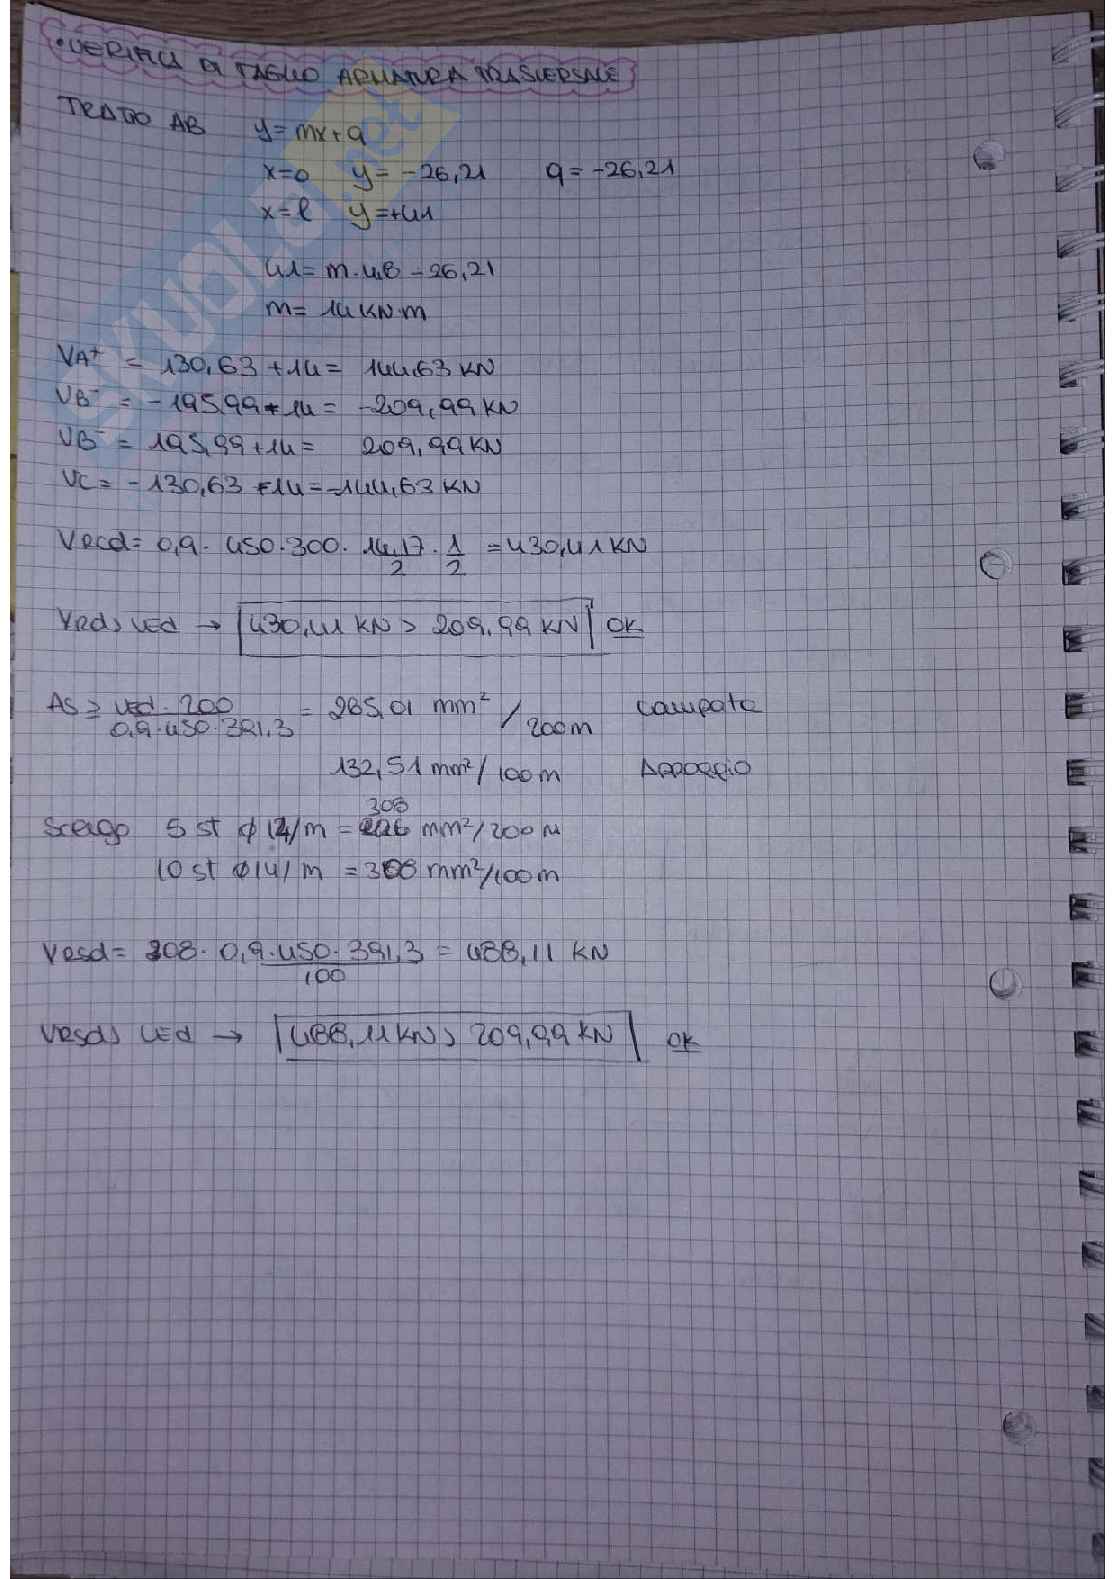 • VERIFICA A TAGLIO ARMATURA TRASVERSALE
TRATTO AB y=mx+q
x=0 y= -26,21 q= -26,21
x=l y=+41
41= m·4,8 -26,21
m= 14 KN·m
VA⁺ = 130,63 +14= 144,63 KN
VB⁻ = -195,99+14= -209,99 KN
VB⁻ = 195,99+14= 209,99 KN
VC= -130,63 +14=-144,63 KN
VRcd= 0,9· 450·300· 14,17/2 · 1/2 =430,41 KN
VRd> VEd → 430,41 KN > 209,99 KN OK
AS ≥ VEd·200 / 0,9·450·391,3 = 265,01 mm²/200m campata
132,51 mm²/100m Appoggio
Scelgo 5 st ϕ 12/m = 308 mm²/200m
10 st ϕ14/m = 308 mm²/100m
VRsd= 308· 0,9·450·391,3 / 100 = 488,11 KN
VRsd> VEd → 488,11 KN > 209,99 KN OK
SKUOLA.net